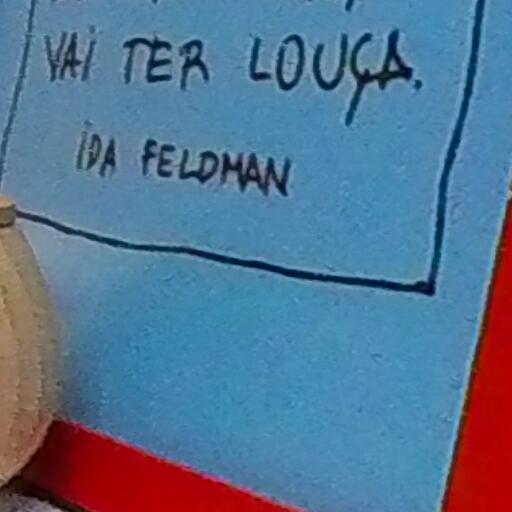 VAI TER LOUÇA.
IDA FELDMAN